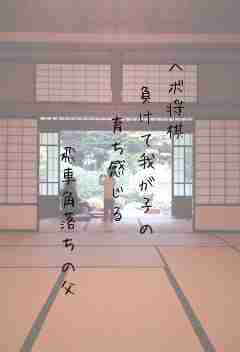 ヘボ将棋
負けて我が子の
育ち感じる
飛車角落ちの父